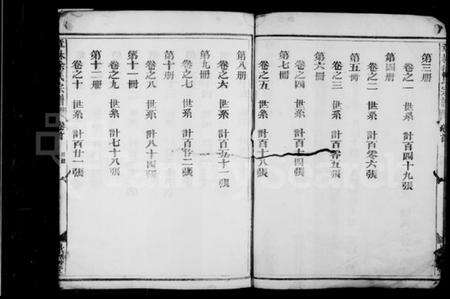 第三册
卷之一 世系 計百四十九張
第四册
卷之二 世系 計百零六張
第五册
卷之三 世系 計百零五張
第六冊
卷之四 世系 計百十四張
第七冊
卷之五 世系 計百十八張
第八册
卷之六 世系 計百五十一張
第九冊
卷之七 世系 計百廿二張
第十册
卷之八 世系 計八十四張
第十一冊
卷之九 世系 計七十八張
第十二册
卷之十 世系 計百廿一張